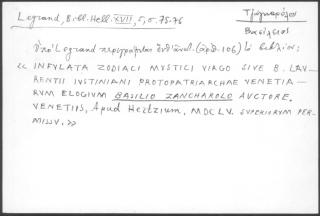 Legrand, Bibl. Hell. XVII, 5, σ. 75-76
Τζαγκαρόλος
Βασίλειος
Ὑπὸ Legrand περιγράφεται (ἀρθ. 106) τὸ βιβλίον:
« INFULATA ZODIACI MYSTICI VIRGO SIVE B. LAU-
RENTII IUSTINIANI PROTOPATRIARCHAE VENETIA-
RUM ELOGIUM BASILIO ZANCHAROLO AUCTORE.
VENETIIS, Apud Hertzium, MDCLV. SUPERIORUM PER-
MISSU. »